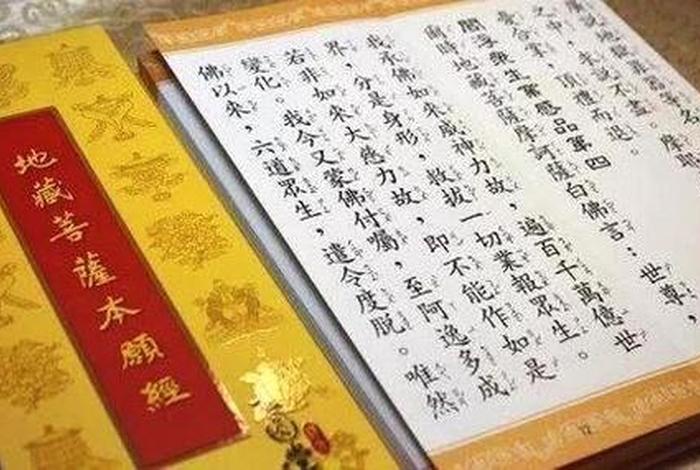 地藏菩薩本願經
之中，求說不盡。摩
憂合掌，頂禮而退。
閻浮眾生業感品第四
爾時地藏菩薩摩訶薩白佛言：世尊，
我承佛如來威神力故，遍百千萬億世
界，分是身形，救拔一切業報眾生。
若非如來大慈力故，即不能作如是
變化。我今又蒙佛付囑，至阿逸多成
佛以來，六道眾生，遣令度脫。唯然
12